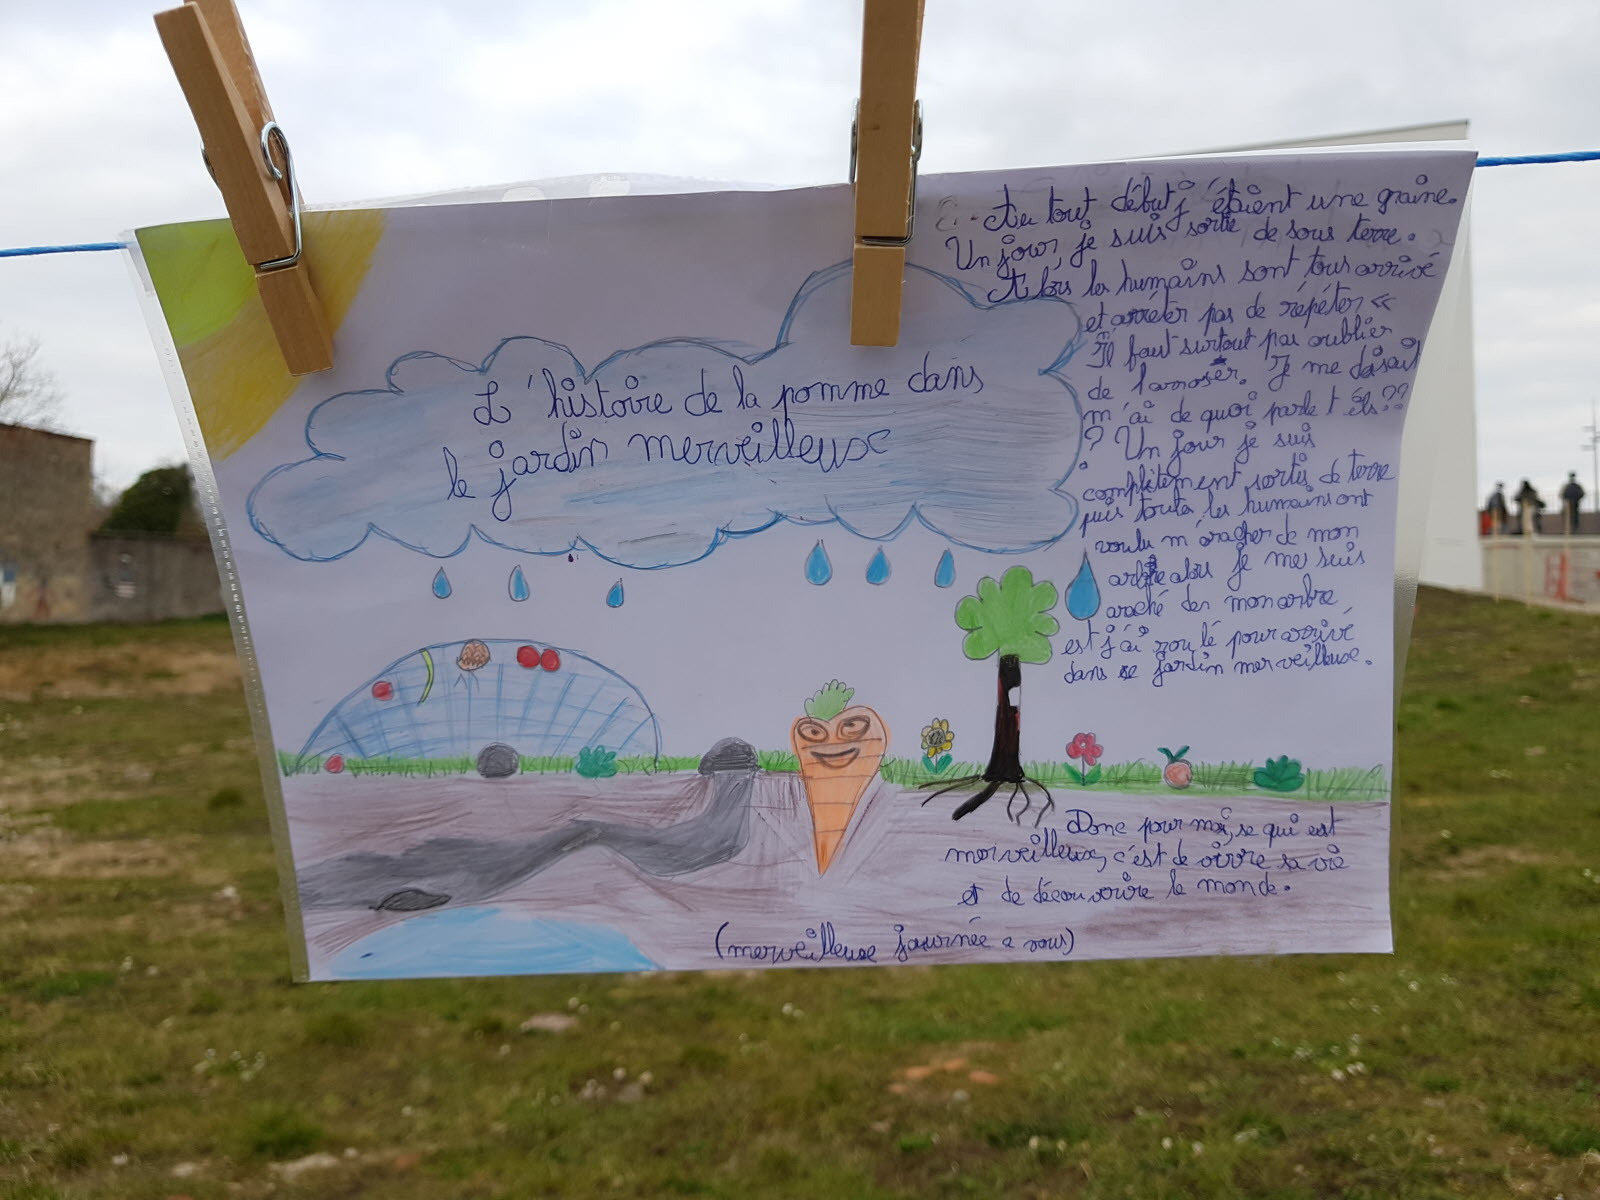 L'histoire de la pomme dans
le jardin merveilleuse
Au tout début j'étaient une graine.
Un jour, je suis sortie de sous terre.
A lors les humains sont tous arrivé
et arréter pas de répéter «
Il faut surtout pas oublier
de l'arroser. Je me disait
m'ai de quoi parle t éls??
? Un jour je suis
complètement sortis de terre
puis toutes les humains ont
voulu m'aracher de mon
arbre alors je me suis
araché der mon arbre
est j'ai roulé pour arrivé
dans se jardin merveilleuse.
Donc pour moi, se qui est
merveilleux, c'est de vivre sa vie
et de découvrire le monde.
(merveilleuse journée a vous)